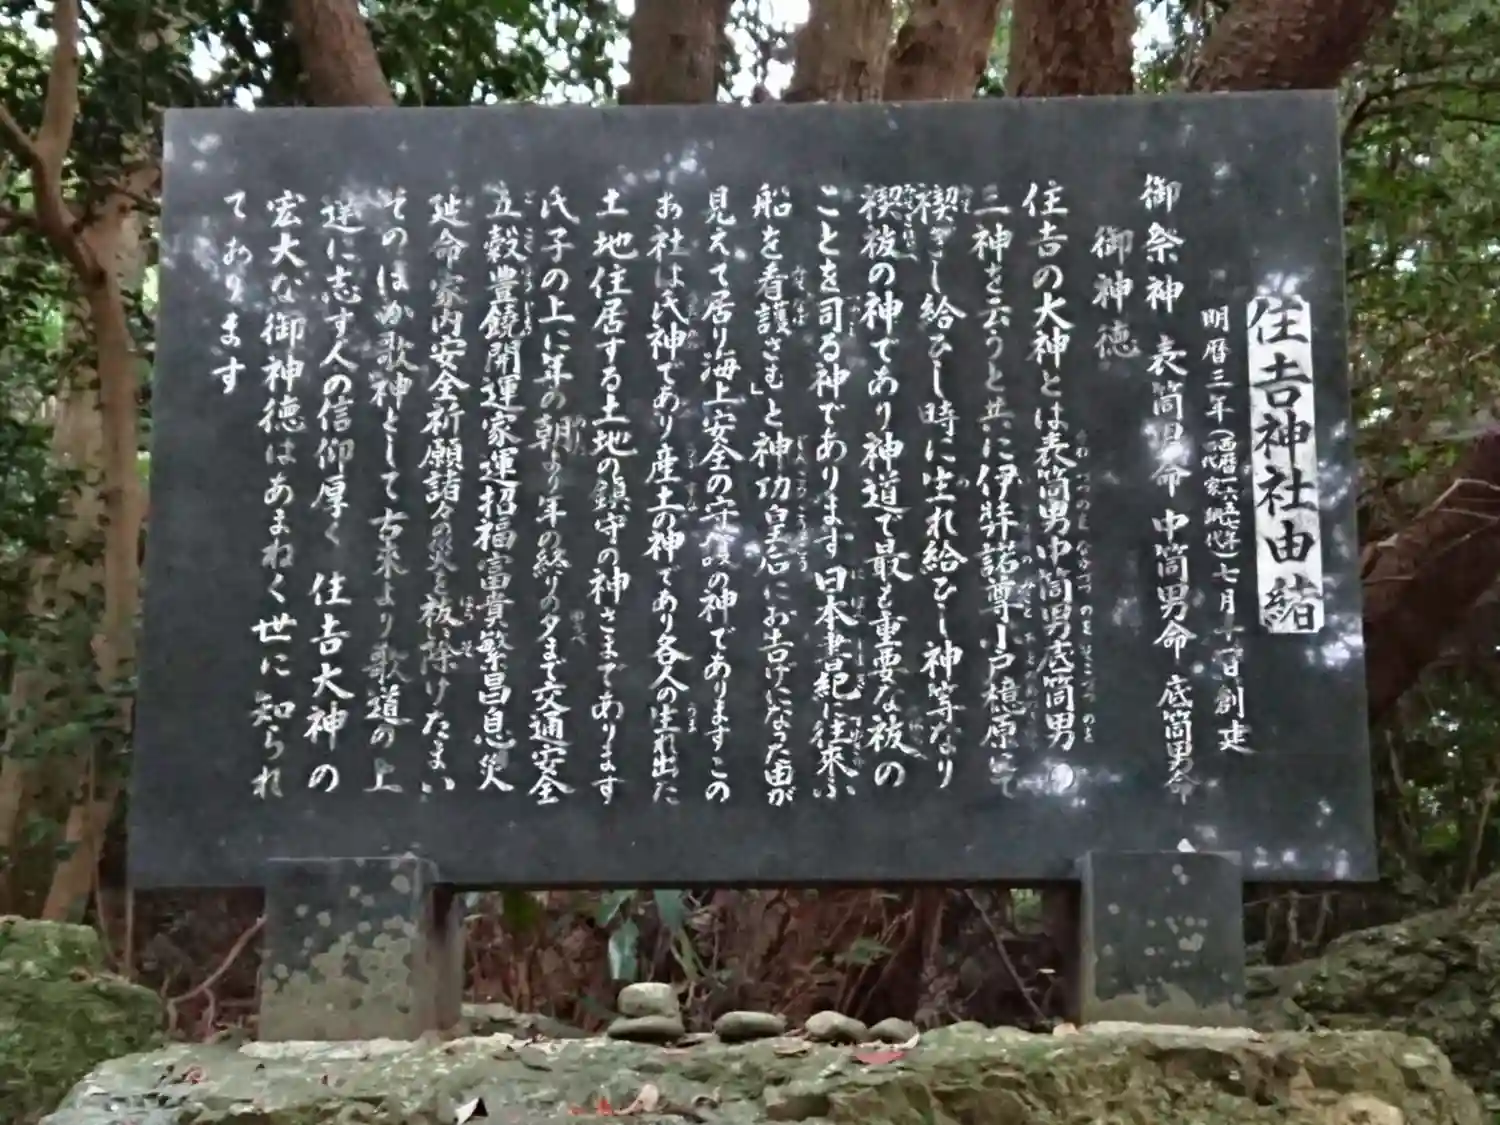 住吉神社由緒
明暦三年(西暦一六五七年)七月十一日創建
御祭神 表筒男命 中筒男命 底筒男命
御神徳
住吉の大神とは表筒男中筒男底筒男の
三神を云うと共に伊弉諾尊小戸檍原にて
禊ぎし給ひし時に生れ給ひし神等なり
禊祓の神であり神道で最も重要な祓の
ことを司る神であります日本書紀に往来ふ
船を看護さむ」と神功皇后にお告げになった由が
見えて居り海上安全の守護の神でありますこの
お社は氏神であり産土の神であり各人の生れ出た
土地住居する土地の鎮守の神さまであります
氏子の上に年の朝より年の終りの夕まで交通安全
五穀豊饒開運家運招福富貴繁昌息災
延命家内安全祈願諸々の災を祓い除けたまい
そのほか歌神として古来より歌道の上
達に志す人の信仰厚く 住吉大神の
宏大な御神徳はあまねく世に知られ
ております